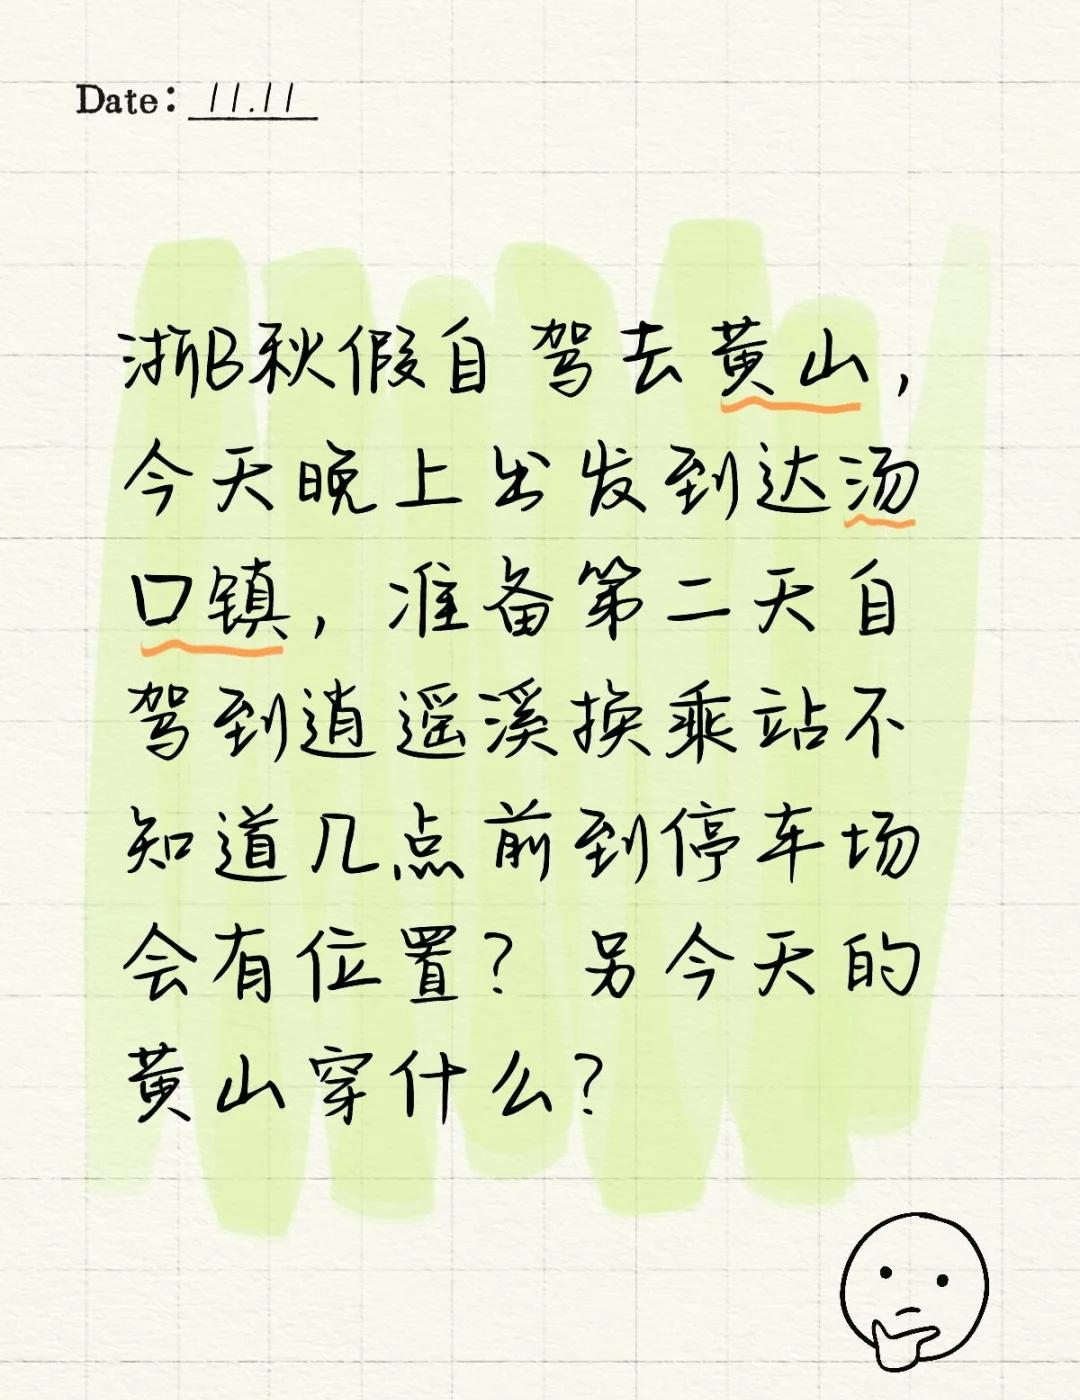 Date: 11.11
浙B秋假自驾去黄山，
今天晚上出发到达汤
口镇，准备第二天自
驾到逍遥溪换乘站不
知道几点前到停车场
会有位置？另今天的
黄山穿什么？